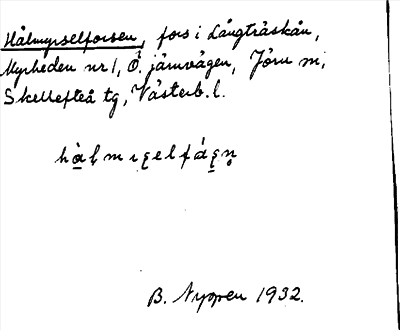 Hålmyrselforsen, fors i Långträskån,
Myrheden nr 1, Ö. järnvägen, Jörn sn,
Skellefteå tg, Västerb. l.
B. Nygren 1932.